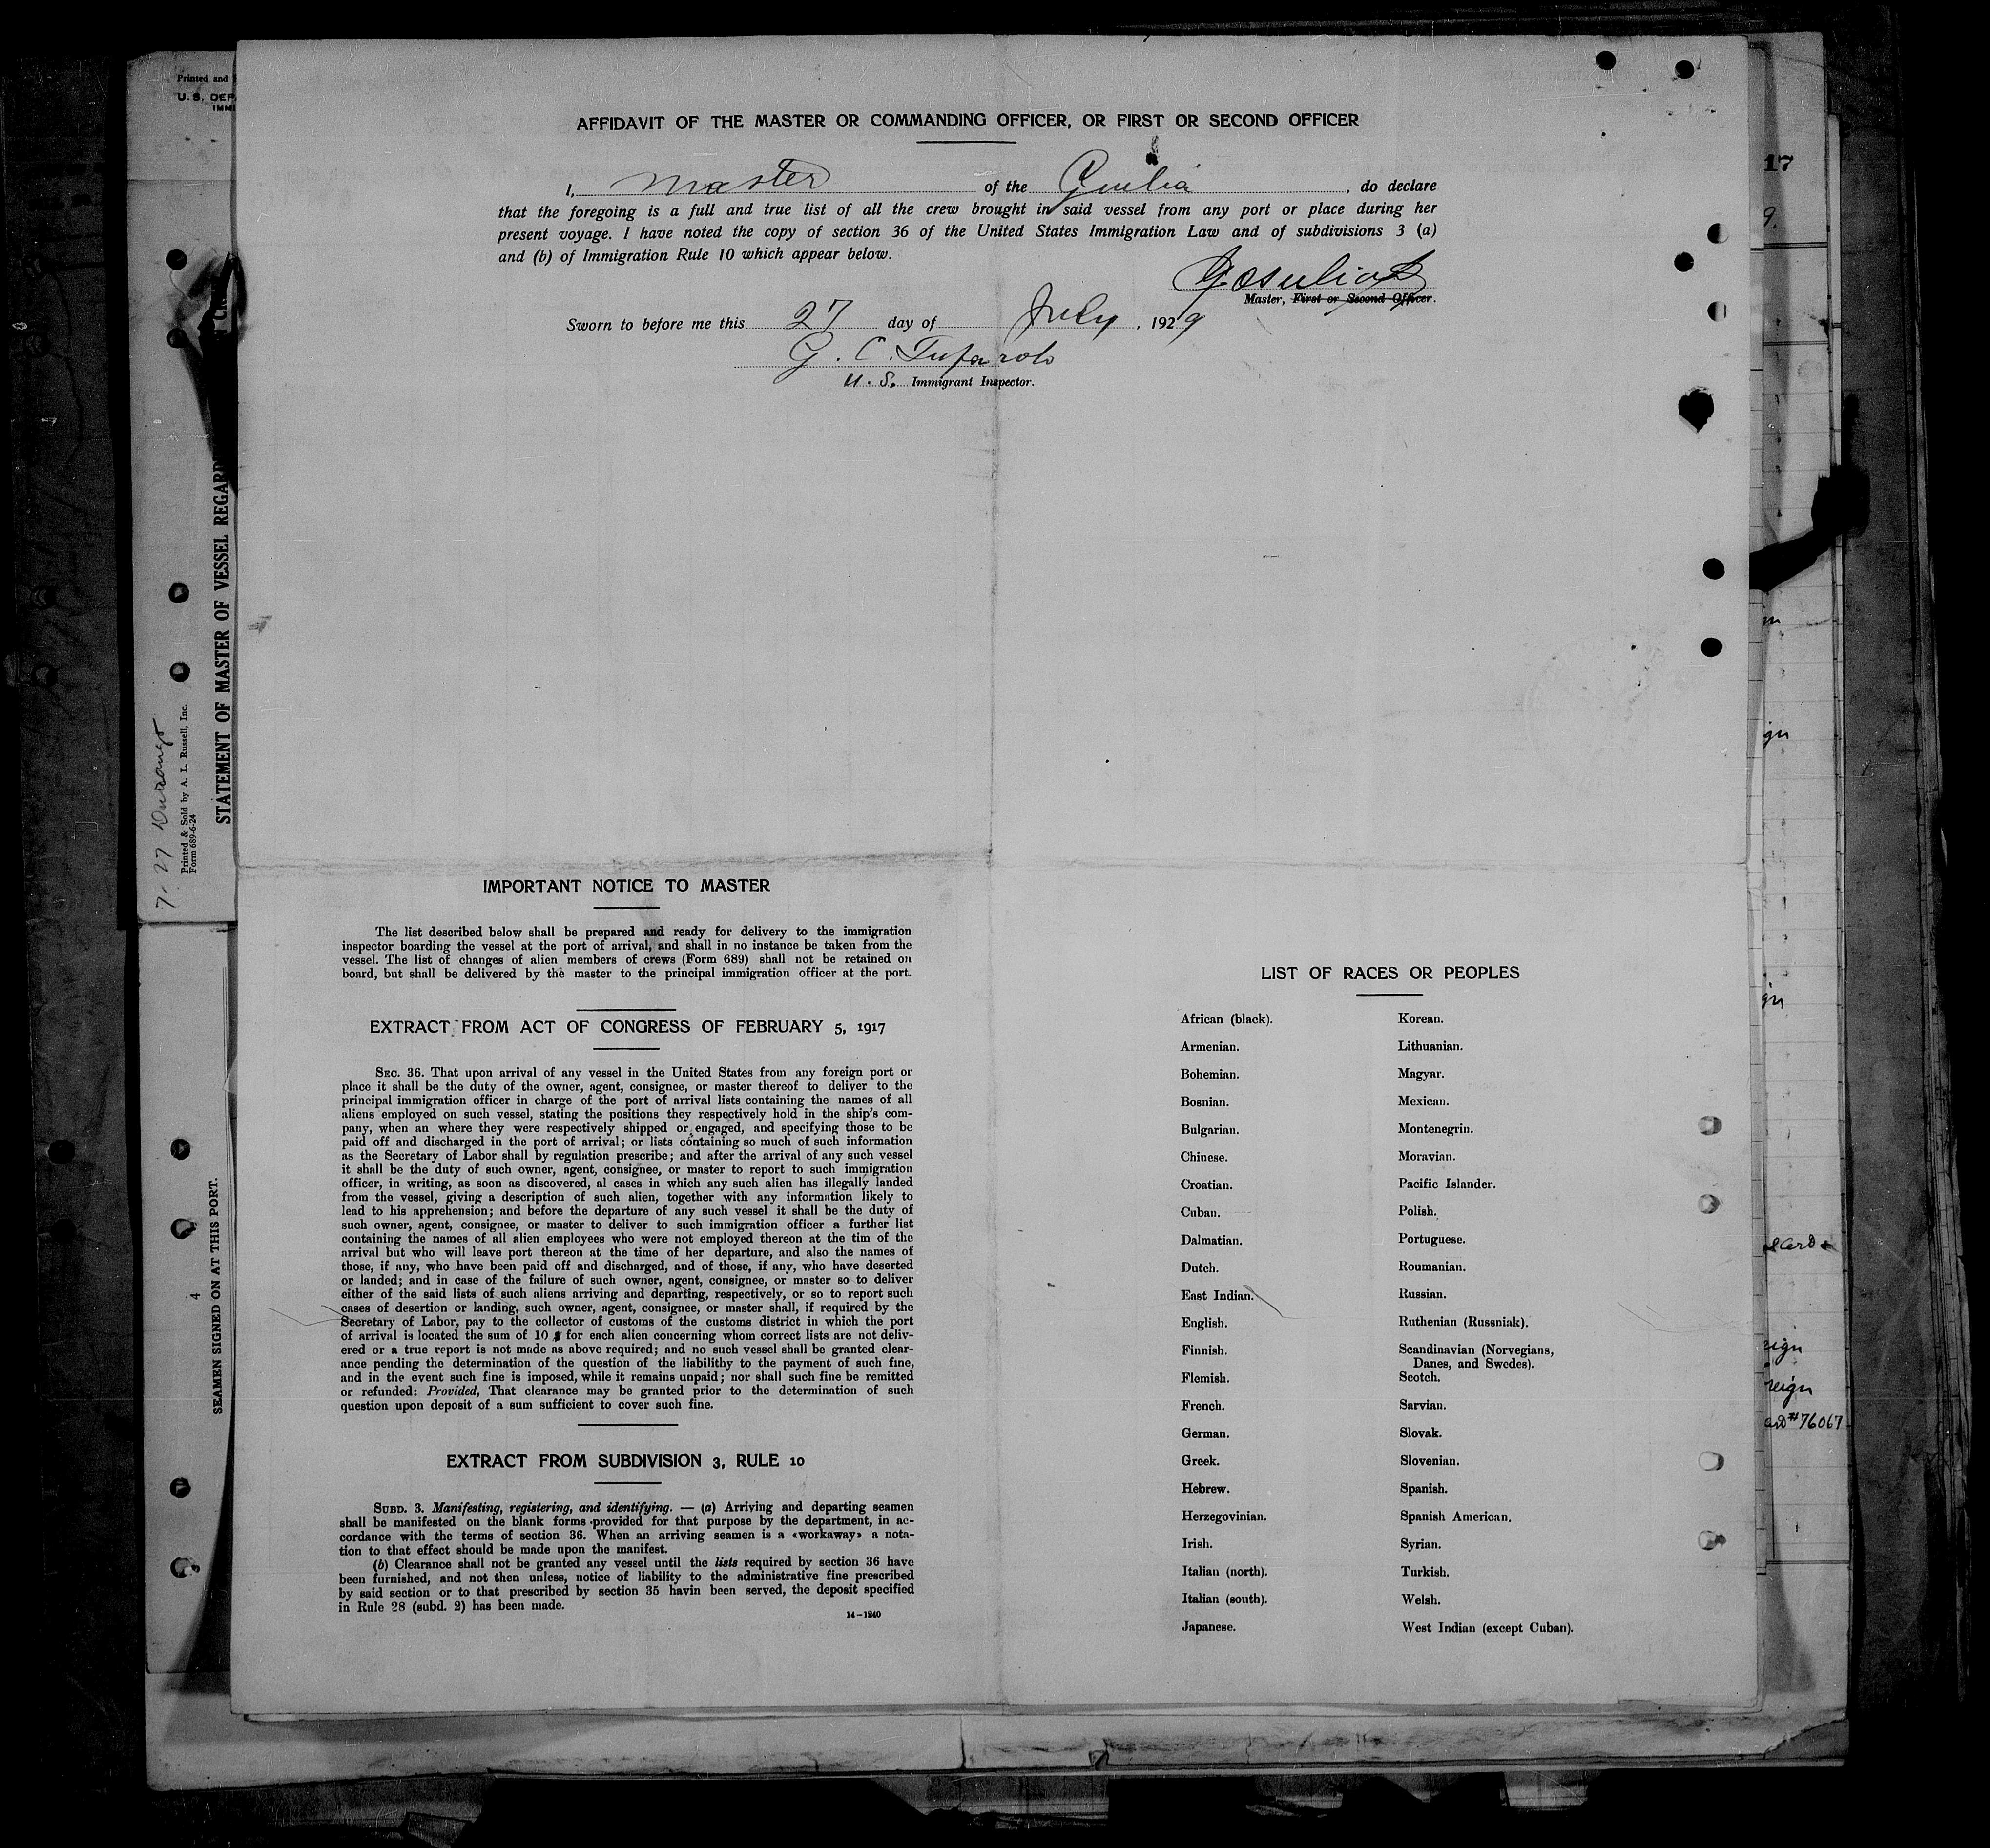 AFFIDAVIT OF THE MASTER OR COMMANDING OFFICER, OR FIRST OR SECOND OFFICER
I, Master of the Giulia, do declare
that the foregoing is a full and true list of all the crew brought in said vessel from any port or place during her
present voyage. I have noted the copy of section 36 of the United States Immigration Law and of subdivisions 3 (a)
and (b) of Immigration Rule 10 which appear below.
Master, First or Second Officer.
Sworn to before me this 27 day of July, 1929
G. C.
U. S. Immigrant Inspector.
IMPORTANT NOTICE TO MASTER
The list described below shall be prepared and ready for delivery to the immigration
inspector boarding the vessel at the port of arrival, and shall in no instance be taken from the
vessel. The list of changes of alien members of crews (Form 689) shall not be retained on
board, but shall be delivered by the master to the principal immigration officer at the port.
EXTRACT FROM ACT OF CONGRESS OF FEBRUARY 5, 1917
SEC. 36. That upon arrival of any vessel in the United States from any foreign port or
place it shall be the duty of the owner, agent, consignee, or master thereof to deliver to the
principal immigration officer in charge of the port of arrival lists containing the names of all
aliens employed on such vessel, stating the positions they respectively hold in the ship's com-
pany, when an where they were respectively shipped or engaged, and specifying those to be
paid off and discharged in the port of arrival; or lists containing so much of such information
as the Secretary of Labor shall by regulation prescribe; and after the arrival of any such vessel
it shall be the duty of such owner, agent, consignee, or master to report to such immigration
officer, in writing, as soon as discovered, al cases in which any such alien has illegally landed
from the vessel, giving a description of such alien, together with any information likely to
lead to his apprehension; and before the departure of any such vessel it shall be the duty of
such owner, agent, consignee, or master to deliver to such immigration officer a further list
containing the names of all alien employees who were not employed thereon at the tim of the
arrival but who will leave port thereon at the time of her departure, and also the names of
those, if any, who have been paid off and discharged, and of those, if any, who have deserted
or landed; and in case of the failure of such owner, agent, consignee, or master so to deliver
either of the said lists of such aliens arriving and departing, respectively, or so to report such
cases of desertion or landing, such owner, agent, consignee, or master shall, if required by the
Secretary of Labor, pay to the collector of customs of the customs district in which the port
of arrival is located the sum of 10 $ for each alien concerning whom correct lists are not deliv-
ered or a true report is not made as above required; and no such vessel shall be granted clear-
ance pending the determination of the question of the liabilithy to the payment of such fine,
and in the event such fine is imposed, while it remains unpaid; nor shall such fine be remitted
or refunded: Provided, That clearance may be granted prior to the determination of such
question upon deposit of a sum sufficient to cover such fine.
EXTRACT FROM SUBDIVISION 3, RULE 10
SUBD. 3. Manifesting, registering, and identifying. — (a) Arriving and departing seamen
shall be manifested on the blank forms provided for that purpose by the department, in ac-
cordance with the terms of section 36. When an arriving seamen is a «workaway» a nota-
tion to that effect should be made upon the manifest.
(b) Clearance shall not be granted any vessel until the lists required by section 36 have
been furnished, and not then unless, notice of liability to the administrative fine prescribed
by said section or to that prescribed by section 35 havin been served, the deposit specified
in Rule 28 (subd. 2) has been made.
14-1240
LIST OF RACES OR PEOPLES
African (black). Korean.
Armenian. Lithuanian.
Bohemian. Magyar.
Bosnian. Mexican.
Bulgarian. Montenegrin.
Chinese. Moravian.
Croatian. Pacific Islander.
Cuban. Polish.
Dalmatian. Portuguese.
Dutch. Roumanian.
East Indian. Russian.
English. Ruthenian (Russniak).
Finnish. Scandinavian (Norvegians,
Danes, and Swedes).
Flemish. Scotch.
French. Sarvian.
German. Slovak.
Greek. Slovenian.
Hebrew. Spanish.
Herzegovinian. Spanish American.
Irish. Syrian.
Italian (north). Turkish.
Italian (south). Welsh.
Japanese. West Indian (except Cuban).
Printed and
U. S. DEP
IMMI
STATEMENT OF MASTER OF VESSEL REGARD
Printed & Sold by A. L. Russell, Inc.
Form 689-6-24
7. 27 Durango
4
SEAMEN SIGNED ON AT THIS PORT.
17
9.
gn
gn
eign
reign
ard #76067